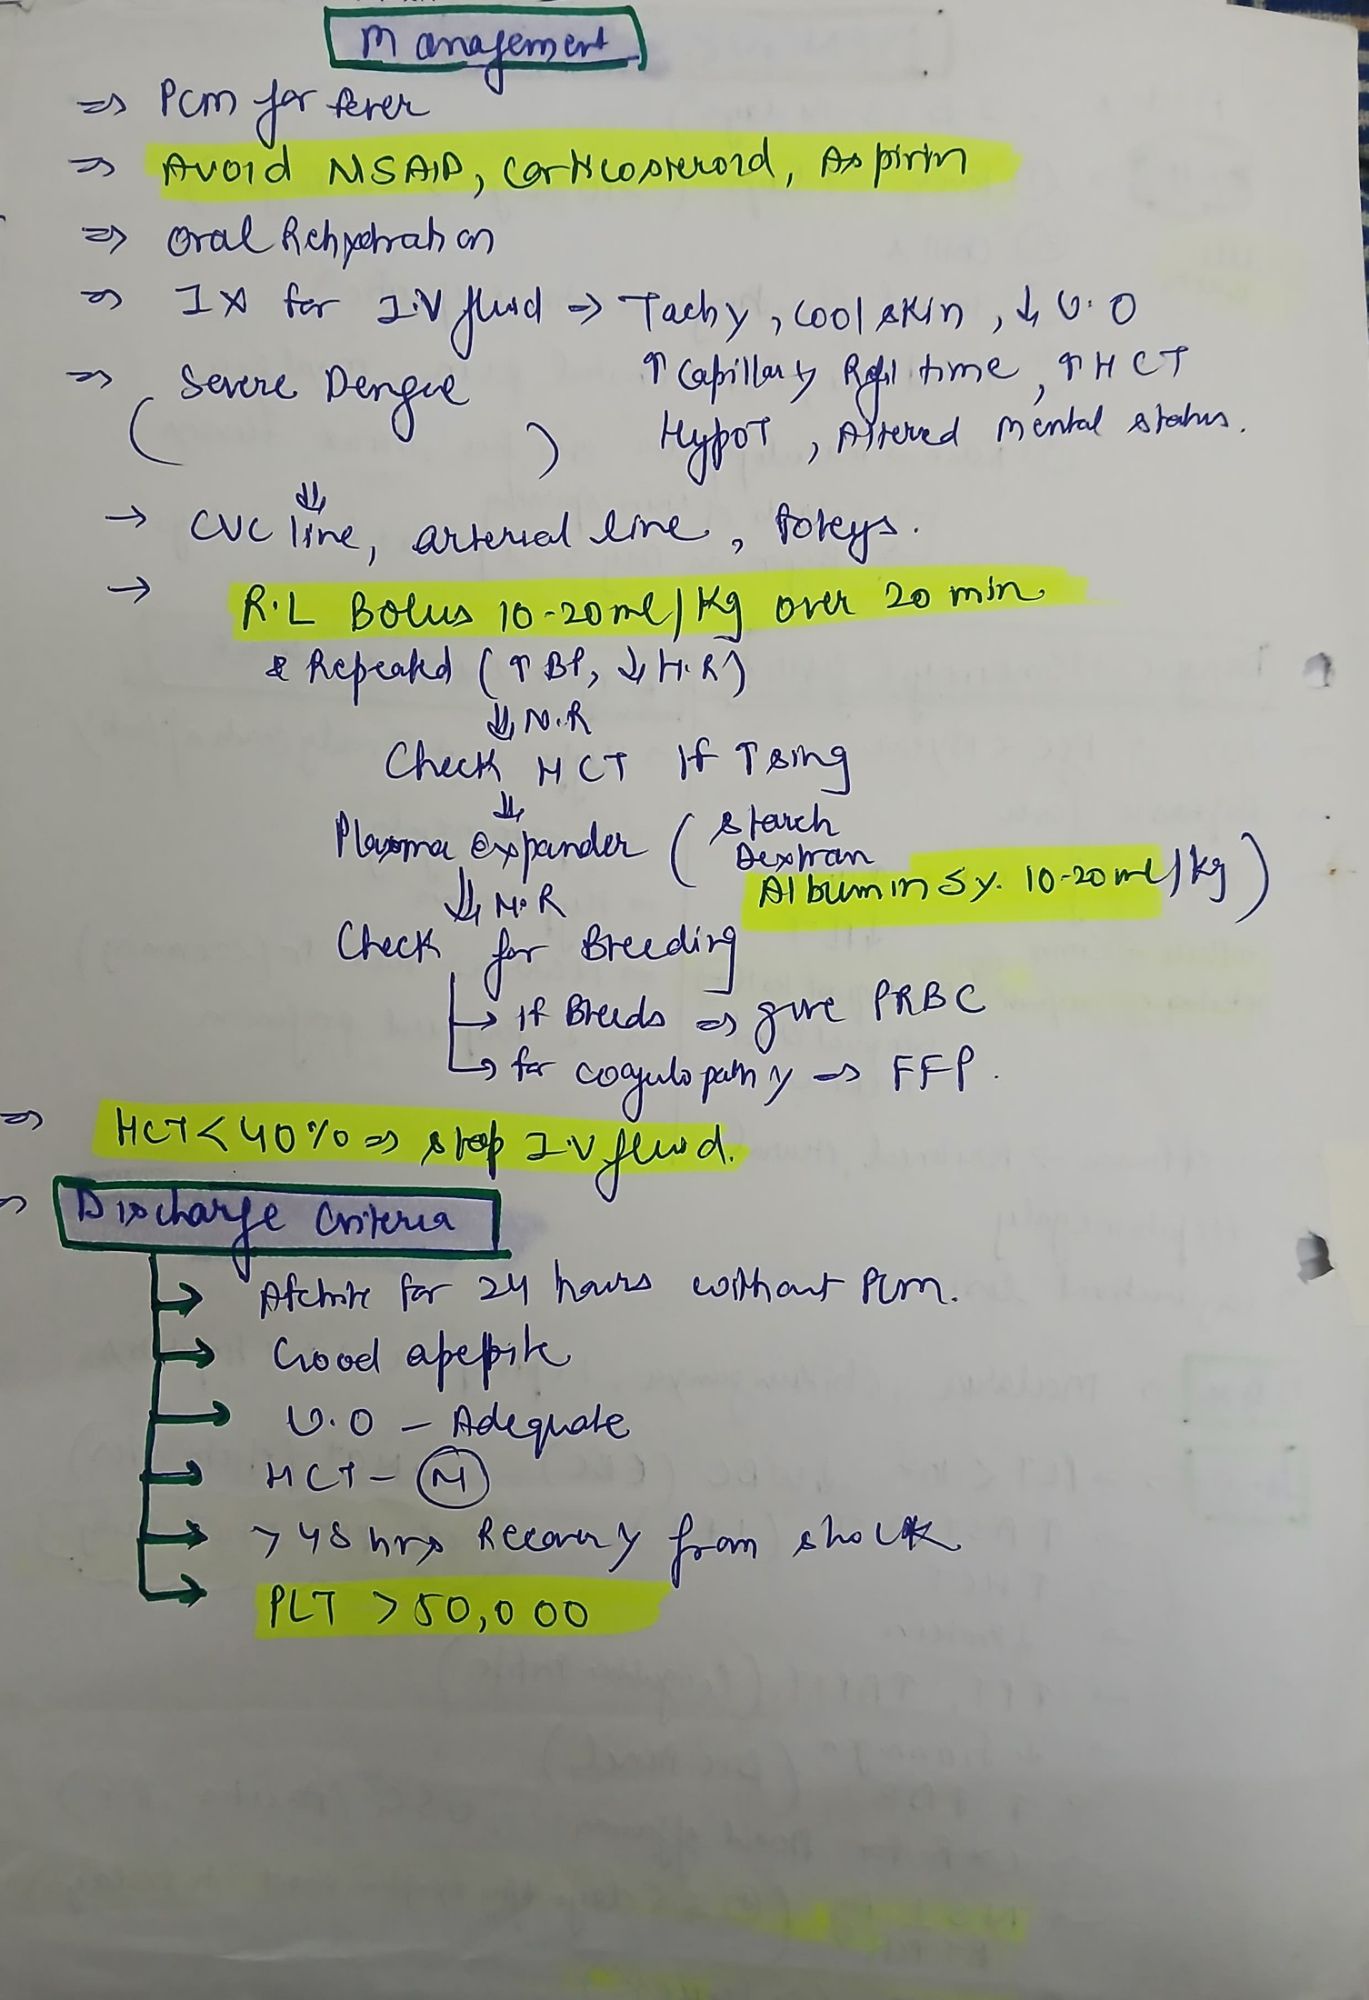 Management
⇒ Pcm for fever
⇒ Avoid NSAID, Corticosteroid, Aspirin
⇒ Oral Rehydration
⇒ Ix for I.V fluid → Tachy, cool skin, ↓ U.O
↑ Capillary Refil time, ↑ HCT
⇒ Severe Dengue
HypoT, Altered mental status.
( )
⇓
→ CVC line, arterial line, foleys.
→ R.L Bolus 10-20ml/Kg over 20 min.
& Repeated (↑ BP, ↓ H.R)
⇓ N.R
Check HCT If ↑sing
⇓
Plasma expander ( starch
Dextran
Albumin 5%. 10-20ml/kg )
⇓ N.R
Check for Bleeding
→ if Bleeds ⇒ give PRBC
→ for coagulopathy ⇒ FFP.
⇒ HCT < 40% ⇒ stop I.V fluid.
⇒ Discharge Criteria
→ Afebrile for 24 hours without Pcm.
→ Good apepite
→ U.O - Adequate
→ HCT - (N)
→ > 48 hrs Recovery from shock
→ PLT > 50,000